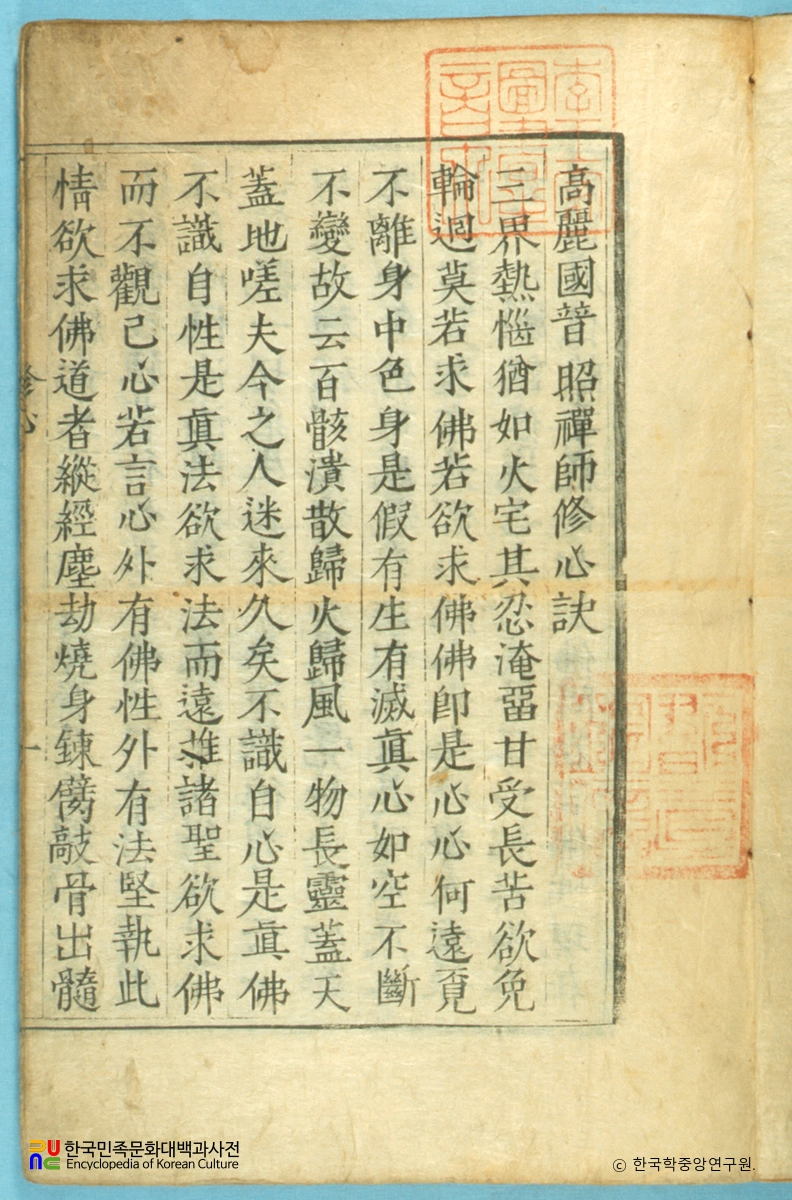 高麗國普照禪師修心訣
三界熱惱猶如火宅其忍淹畱甘受長苦欲免
輪迴莫若求佛若欲求佛佛卽是心心何遠覔
不離身中色身是假有生有滅眞心如空不斷
不變故云百骸潰散歸火歸風一物長靈蓋天
蓋地嗟夫今之人迷來久矣不識自心是眞佛
不識自性是眞法欲求法而遠推諸聖欲求佛
而不觀己心若言心外有佛性外有法堅執此
情欲求佛道者縱經塵劫燒身鍊臂敲骨出髓
修心
一
한국민족문화대백과사전
Encyclopedia of Korean Culture
© 한국학중앙연구원.